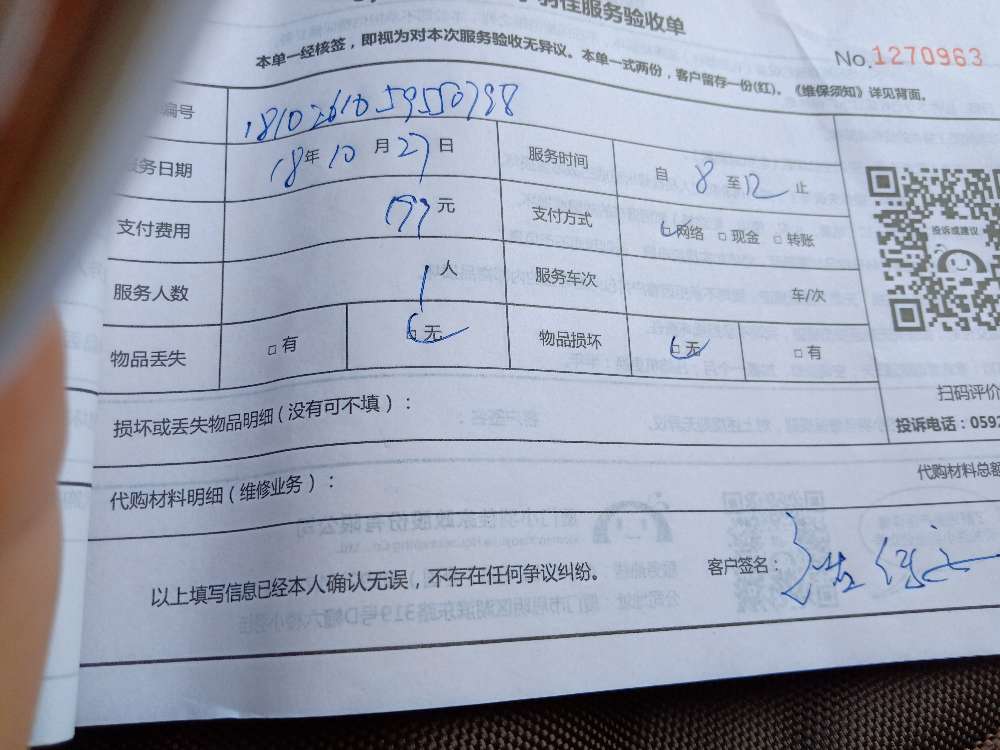 羽佳服务验收单
No.1270963
本单一经核签，即视为对本次服务验收无异议。本单一式两份，客户留存一份(红)。《维保须知》详见背面。
编号 1810261059550798
服务日期 18年10月27日 服务时间 自8至12止
支付费用 199元 支付方式 网络 □现金 □转账
投诉或建议
服务人数 1人 服务车次 车/次
物品丢失 □有 □无 物品损坏 □无 □有
扫码评价
损坏或丢失物品明细(没有可不填)：
投诉电话：0592
代购材料明细(维修业务)：
代购材料总额
以上填写信息已经本人确认无误，不存在任何争议纠纷。
客户签名：